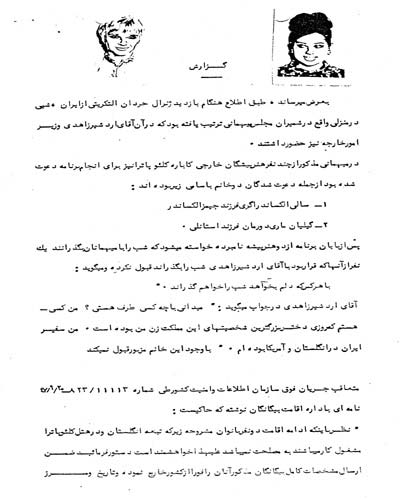 گزارش
بعرض میرساند • طبق اطلاع هنگام بازدید ژنرال حردان التکریتی از ایران • شبی
در منزلی واقع در شمیران مجلس میهمانی ترتیب یافته بود که در آن آقای اردشیر زاهدی وزیر
امور خارجه نیز حضور داشتند •
در میهمانی مذکور از چند نفر هنرپیشگان خارجی کاباره کلئوپاترا نیز برای انجام برنامه دعوت
شده بود از جمله دعوت شدگان دو خانم باسامی زیر بوده اند :
۱ــ سالی الکساندرا گری فرزند جیمز الکساندر
۲ــ گیلیان ماری دورمان فرزند استانلی •
پس از پایان برنامه از دو هنرپیشه نامبرده خواسته میشود که شب را با میهمانان بگذرانند یك
نفر از آنها که قرار بود با آقای اردشیر زاهدی شب را بگذراند قبول نکرده و میگوید :
با هر کس که دلم بخواهد شب را خواهم گذراند • "
آقای اردشیر زاهدی در جواب میگوید : " میدانی با چه کسی طرف هستی ؟ من کسی ــ
هستم که روزی دختر بزرگترین شخصیتهای این مملکت زن من بوده است • من سفیر
ایران در انگلستان و آمریکا بوده ام • " با وجود این خانم مزبور قبول نمیکند
متعاقب جریان فوق سازمان اطلاعات و امنیت کشور طی شماره ۸۲۳/۱۱۱۱۳ــ
نامه ای باداره اقامت بیگانگان نوشته که حاکیست :
" نظر باینکه ادامه اقامت دو نفر بانوان مشروحه زیر که تبعه انگلستان و در هتل کلئوپاترا
مشغول کار میباشند به مصلحت نمیباشد علیهذا خواهشمند است دستور فرمائید ضمن
ارسال مشخصات کامل بیگانگان مذکور آنان را فورا از کشور خارج نموده و تاریخ و مرز